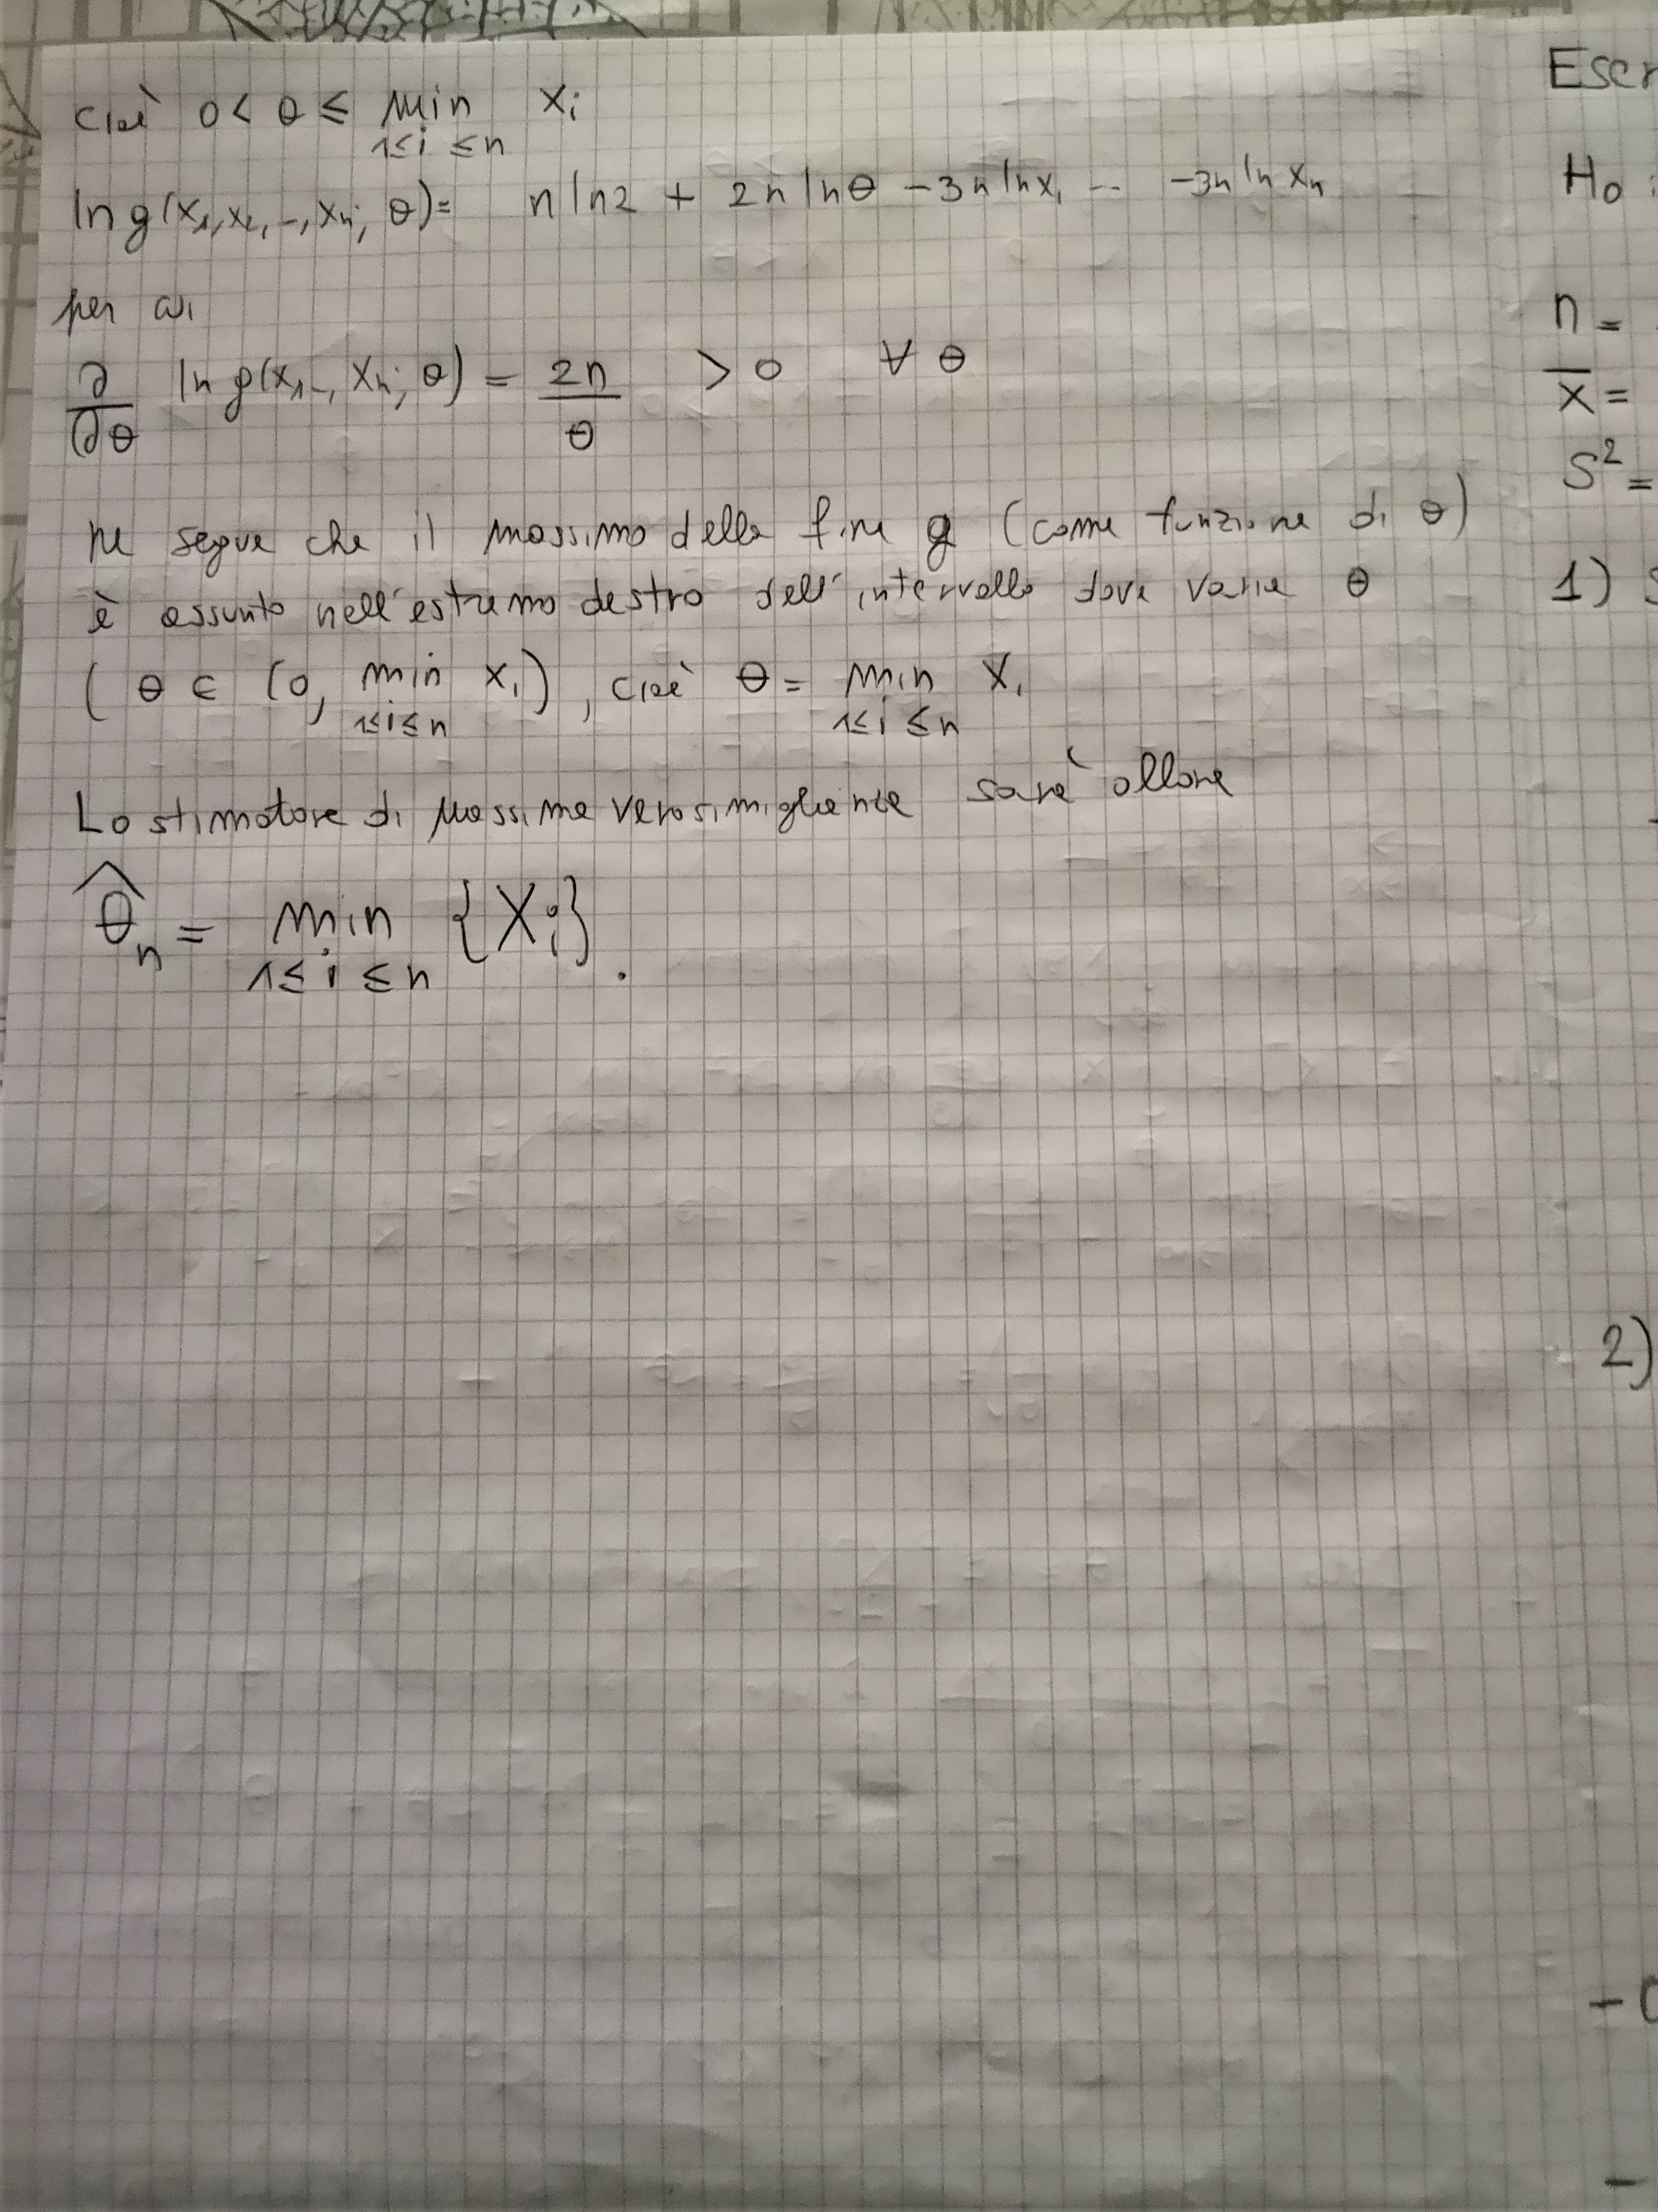 cioè 0 < θ ≤ min xi
1≤i≤n
ln g(x1, x2, -, xn; θ) = n ln2 + 2n lnθ - 3n ln x1 -- -3n ln xn
per cui
∂/∂θ ln g(x1-, xn; θ) = 2n/θ > 0 ∀ θ
ne segue che il massimo della f.ne g (come funzione di θ)
è assunto nell'estremo destro dell'intervallo dove varia θ
( θ ∈ (0, min xi) , cioè θ = min xi
1≤i≤n 1≤i≤n
Lo stimatore di massima verosimiglianza sarà allora
θ̂n = min {Xi}.
1≤i≤n
Eser
H0 :
n =
x̄ =
S² =
1)
2)